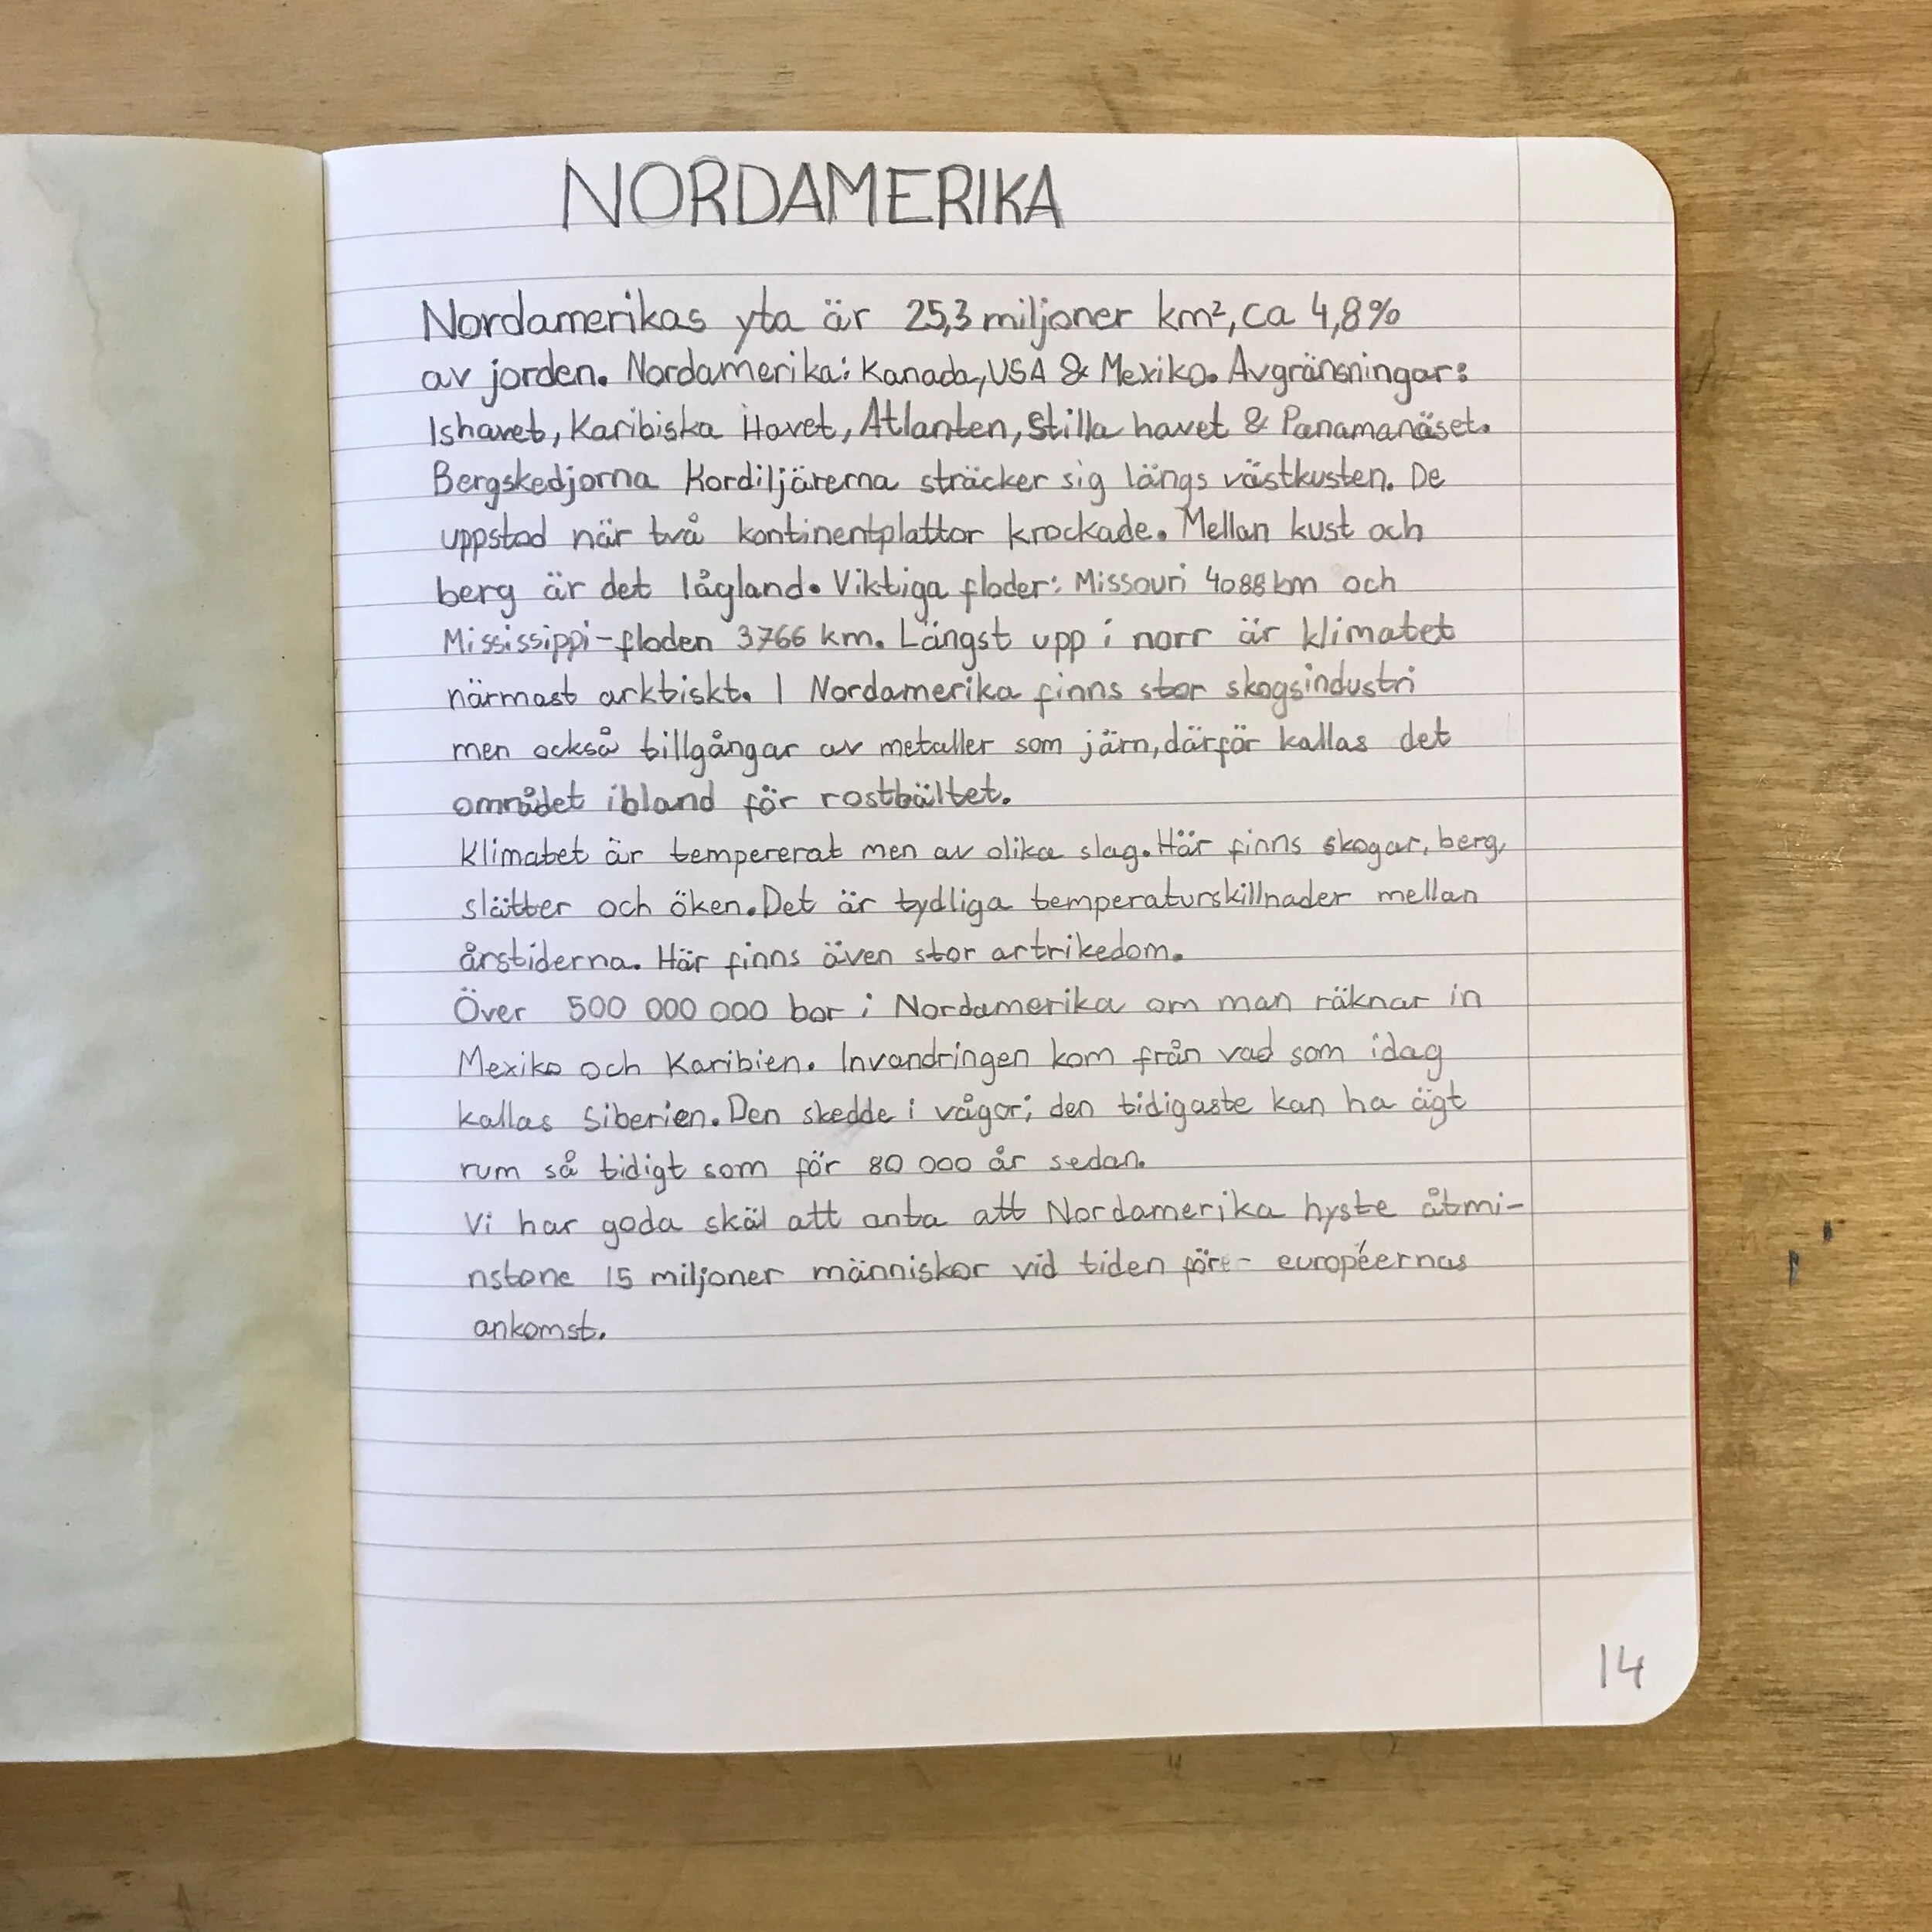 NORDAMERIKA
Nordamerikas yta är 25,3 miljoner km², ca 4,8%
av jorden. Nordamerika: Kanada, USA & Mexiko. Avgränsningar:
Ishavet, Karibiska Havet, Atlanten, Stilla havet & Panamanäset.
Bergskedjorna Kordiljärerna sträcker sig längs västkusten. De
uppstod när två kontinentplattor krockade. Mellan kust och
berg är det lågland. Viktiga floder: Missouri 4088 km och
Mississippi-floden 3766 km. Längst upp i norr är klimatet
närmast arktiskt. I Nordamerika finns stor skogsindustri
men också tillgångar av metaller som järn, därför kallas det
området ibland för rostbältet.
Klimatet är tempererat men av olika slag. Här finns skogar, berg,
slätter och öken. Det är tydliga temperaturskillnader mellan
årstiderna. Här finns även stor artrikedom.
Över 500 000 000 bor i Nordamerika om man räknar in
Mexiko och Karibien. Invandringen kom från vad som idag
kallas Siberien. Den skedde i vågor; den tidigaste kan ha ägt
rum så tidigt som för 80 000 år sedan.
Vi har goda skäl att anta att Nordamerika hyste åtmi-
nstone 15 miljoner människor vid tiden före- européernas
ankomst.
14